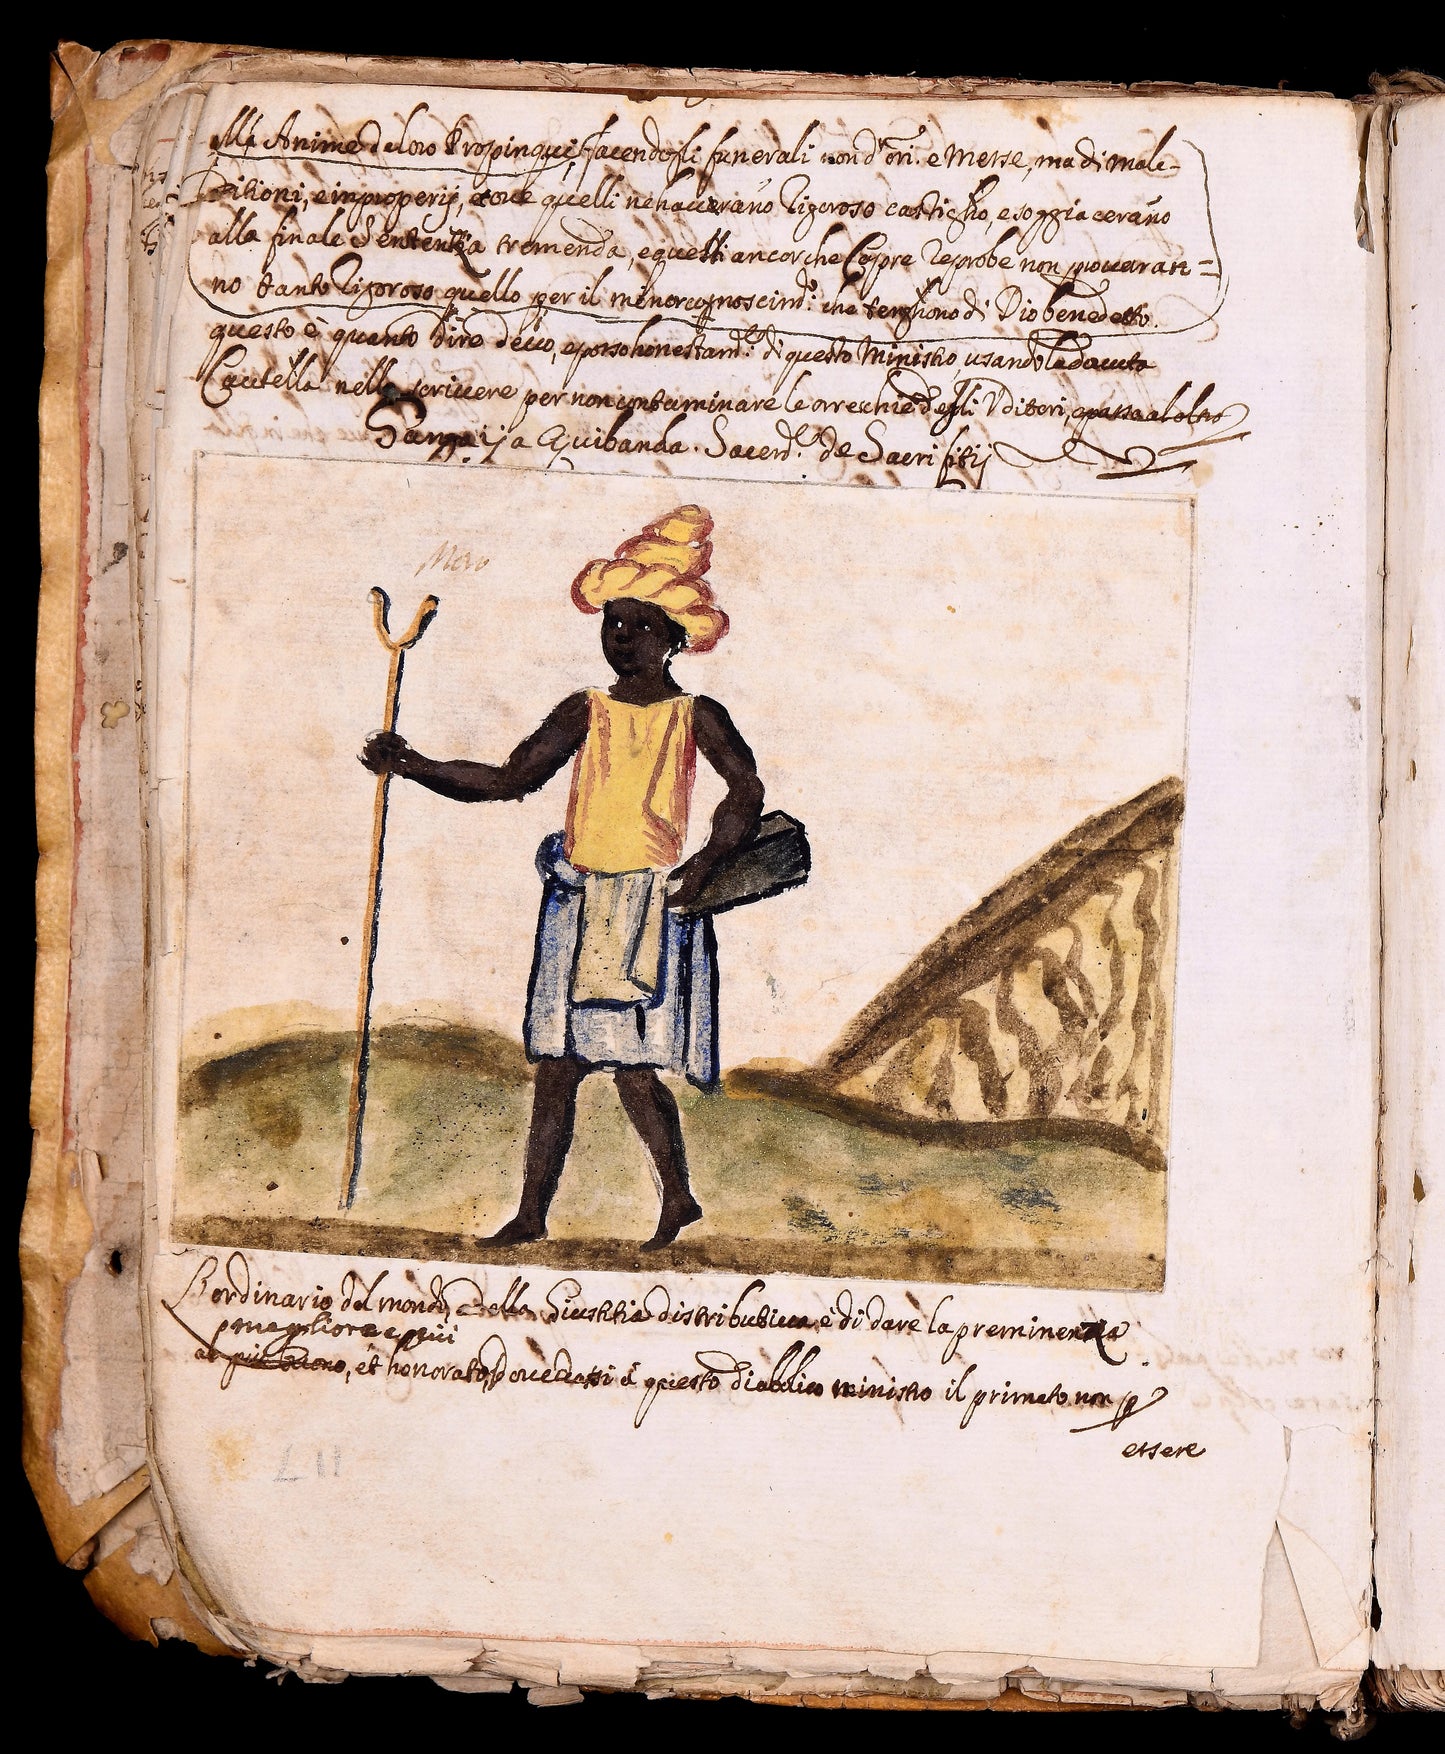 alle Anime de loro Propinqui, facendosli funerali non d'Ori. e Messe, ma di male=
ditioni, e improperij, et ove quelli ne haverano rigoroso castigho, e soggiacerano
alla finale Sentenza tremenda, e questi ancorche sempre reprobe non provaran=
no tanto rigoroso quello per il minor cognoscim.to che tenghono di Dio benedetto.
questo è quanto dire devo, e posso honestam.te di questo Ministro, usando la dovuta
Cautella nello scrivere per non contaminare le orrechie degli Uditori, e passo al oltro
Ganga ij a Quibanda. Sacerd.te de Sacrifitij
Moro
L'ordinario del mondo, e della Giustitia distributiva è di dare la preminenza
migliore e piu
al piu buono, et honorato, dovendossi à questo diabolico ministro il primato non p
essere
117